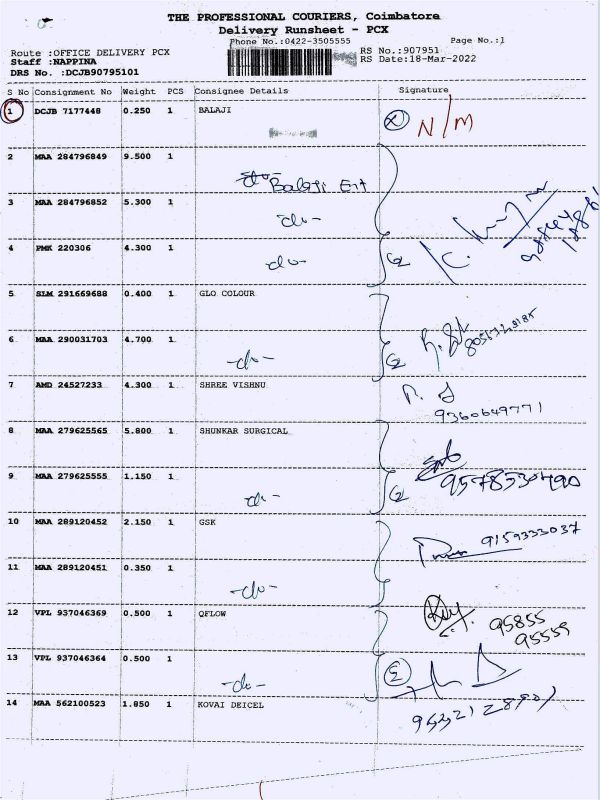 THE PROFESSIONAL COURIERS, Coimbatore
Delivery Runsheet - PCX
Phone No.:0422-3505555
Page No.:1
Route :OFFICE DELIVERY PCX
RS No.:907951
Staff :NAPPINA
RS Date:18-Mar-2022
DRS No. :DCJB90795101
S No Consignment No Weight PCS Consignee Details Signature
1 DCJB 7177448 0.250 1 BALAJI N/M
2 MAA 284796849 9.500 1 Balaji Ent
3 MAA 284796852 5.300 1 -do-
4 PMK 220306 4.300 1 -do-
5 SLM 291669688 0.400 1 GLO COLOUR
6 MAA 290031703 4.700 1 -do-
7 AMD 24527233 4.300 1 SHREE VISHNU
9360649771
8 MAA 279625565 5.800 1 SHUNKAR SURGICAL
9 MAA 279625555 1.150 1 -do- 9578530490
10 MAA 289120452 2.150 1 GSK 9159333037
11 MAA 289120451 0.350 1 -do-
12 VPL 937046369 0.500 1 QFLOW 95855
95559
13 VPL 937046364 0.500 1 -do-
14 MAA 562100523 1.850 1 KOVAI DEICEL